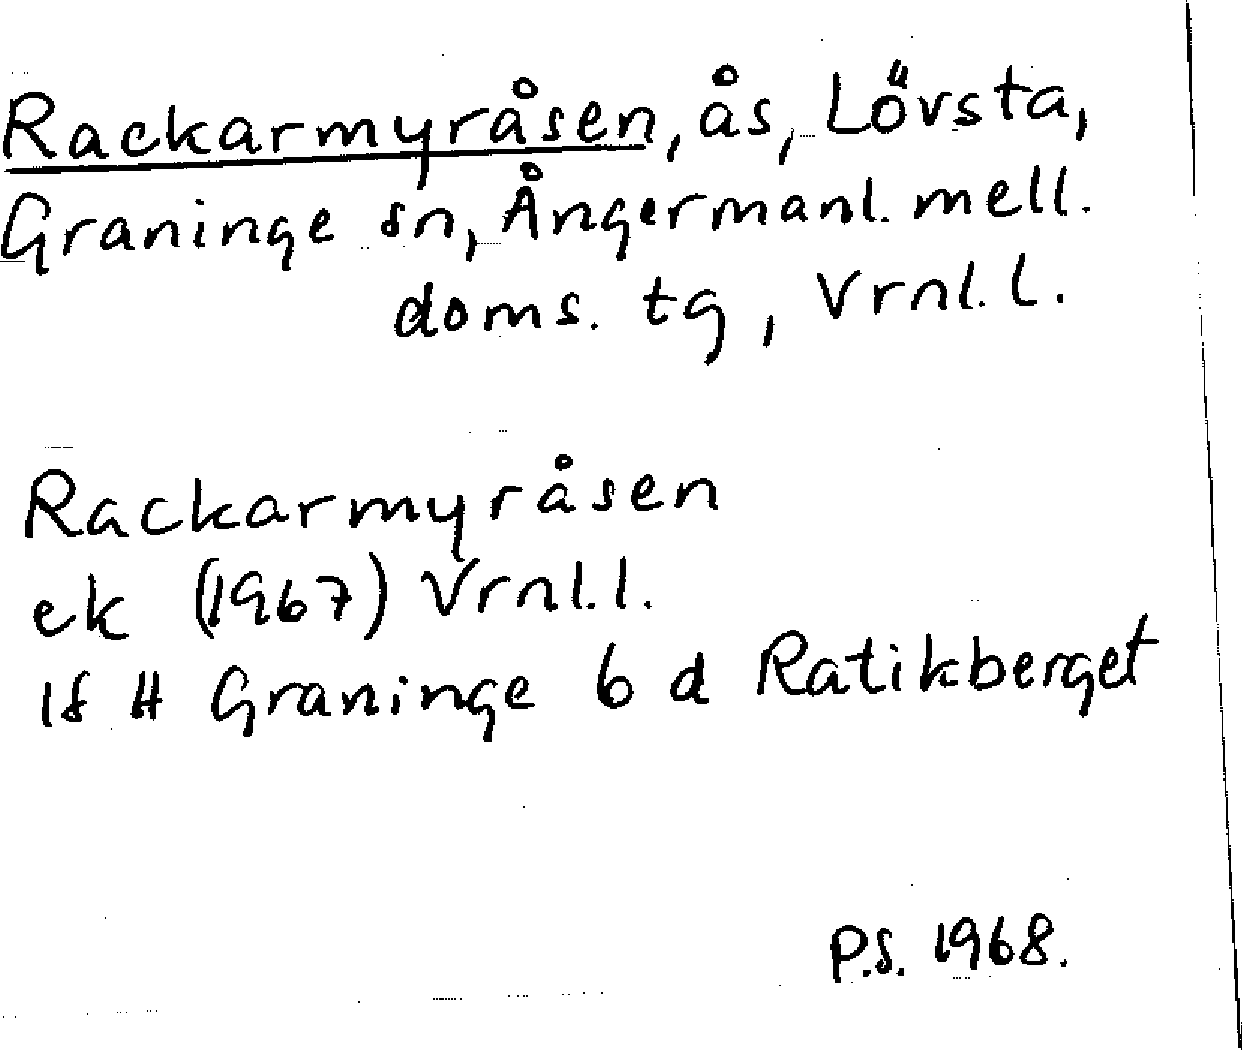 Rackarmyråsen, ås, Lövsta,
Graninge sn, Ångermanl. mell.
doms. tg, Vrnl. l.
Rackarmyråsen
ek (1967) Vrnl. l.
18 H Graninge 6 d Ratikberget
P.S. 1968.